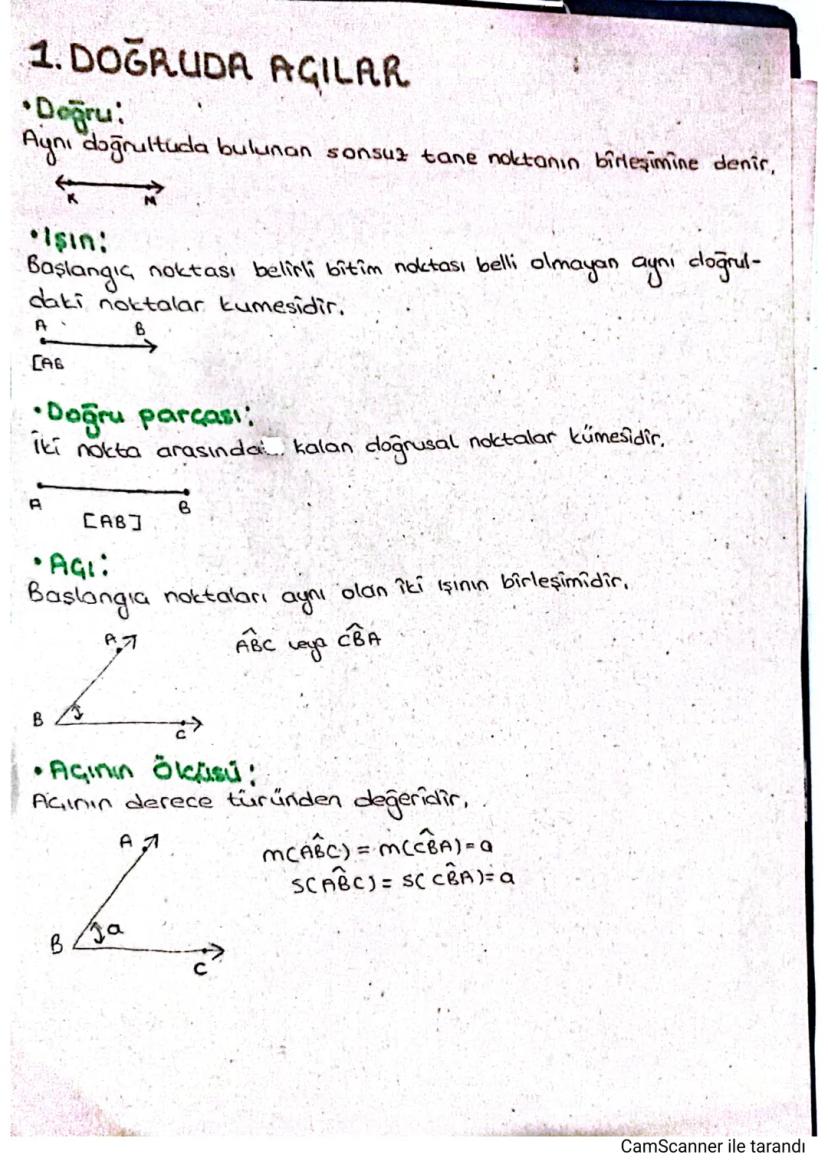 1. DOĞRUDA AÇILAR
• Doğru:
Aynı doğrultuda bulunan sonsuz tane noktanın birleşimine denir.
K M
• Işın:
Başlangıç noktası belirli bitim noktası belli olmayan aynı doğrul-
daki noktalar kumesidir.
A B
[AB
• Doğru parçası:
İki nokta arasında kalan doğrusal noktalar kümesidir.
A B
[AB]
• Açı:
Başlangıç noktaları aynı olan iki ışının birleşimidir.
A
ABC veya CBA
B
C
• Açının Ölçüsü:
Açının derece türünden değeridir.
A
m(ABC) = m(CBA) = a
s(ABC) = s(CBA) = a
a
B
C
CamScanner ile tarandı